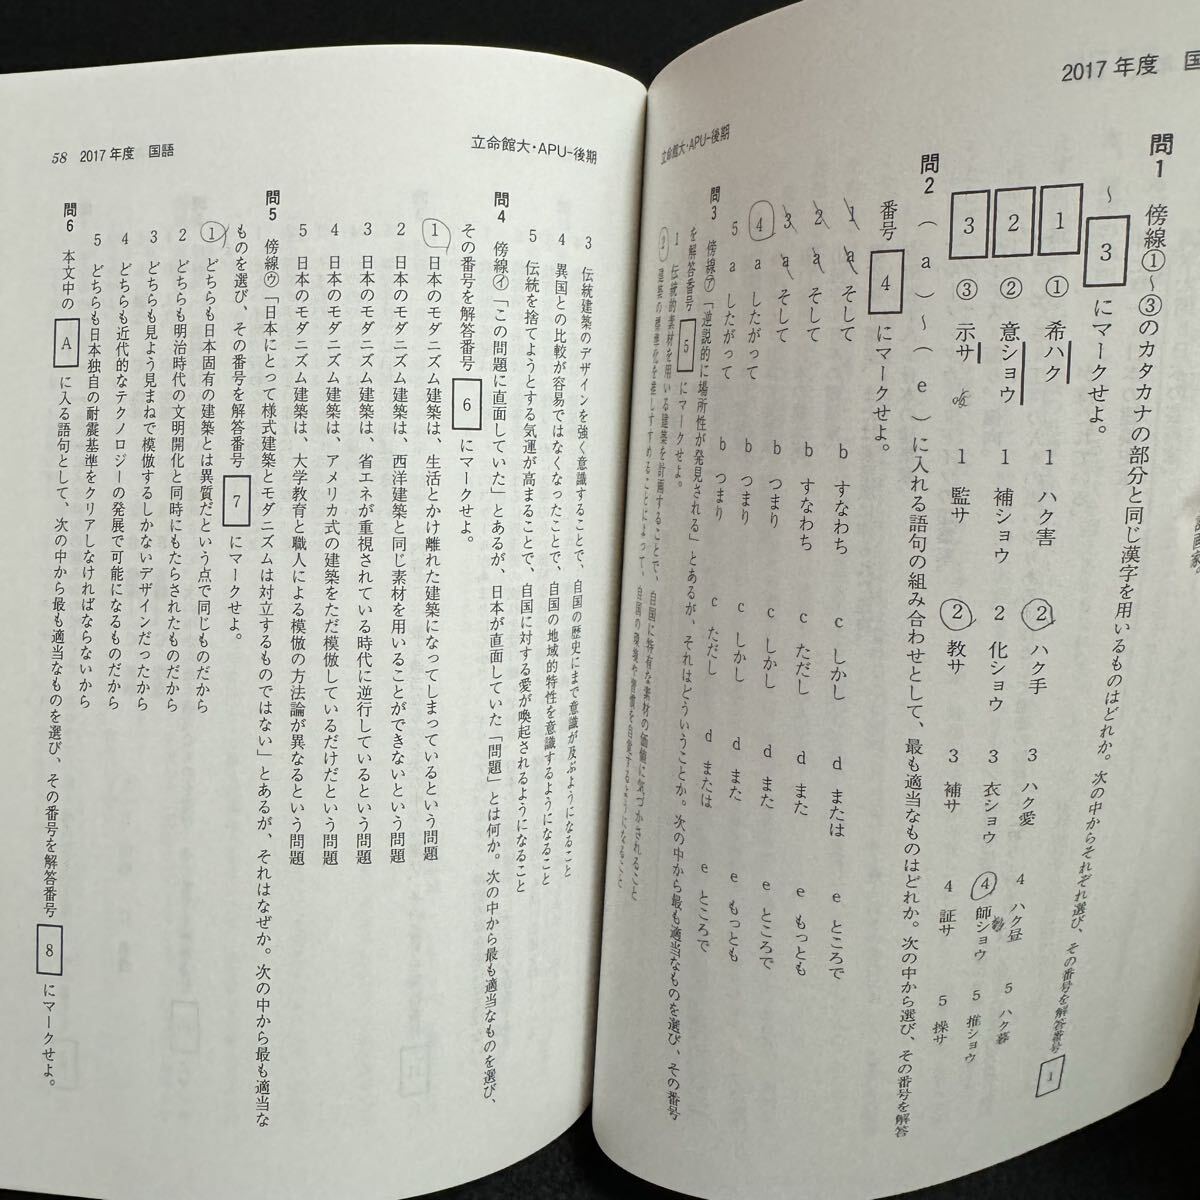 2017年度 国
立命館大・APU−後期
問1 傍線①〜③のカタカナの部分と同じ漢字を用いるものはどれか。次の中からそれぞれ選び、その番号を解答番号 1
〜 3 にマークせよ。
1 ①希ハク 1 ハク害 2 ハク手 3 ハク愛 4 ハク昼 5 ハク暮
2 ②意ショウ 1 補ショウ 2 化ショウ 3 衣ショウ 4 師ショウ 5 推ショウ
3 ③示サ 1 監サ 2 教サ 3 補サ 4 証サ 5 操サ
問2 (a)〜(e)に入れる語句の組み合わせとして、最も適当なものはどれか。次の中から選び、その番号を解答
番号 4 にマークせよ。
1 a そして b すなわち c しかし d または e ところで
2 a そして b すなわち c ただし d また e もっとも
3 a そして b つまり c しかし d または e ところで
4 a したがって b つまり c しかし d また e もっとも
5 a したがって b つまり c ただし d または e ところで
問3 傍線㋐「逆説的に場所性が発見される」とあるが、それはどういうことか。次の中から最も適当なものを選び、その番号
を解答番号 5 にマークせよ。
1 伝統的素材を用いる建築を計画することで、自国に特有な素材の価値に気づかされること
2 建築の標準化を推しすすめることによって、自国の環境や習慣を自覚するようになること
58 2017年度 国語
立命館大・APU−後期
3 伝統建築のデザインを強く意識することで、自国の歴史にまで意識が及ぶようになること
4 異国との比較が容易ではなくなったことで、自国の地域的特性を意識するようになること
5 伝統を捨てようとする気運が高まることで、自国に対する愛が喚起されるようになること
問4 傍線㋑「この問題に直面していた」とあるが、日本が直面していた「問題」とは何か。次の中から最も適当なものを選び、
その番号を解答番号 6 にマークせよ。
1 日本のモダニズム建築は、生活とかけ離れた建築になってしまっているという問題
2 日本のモダニズム建築は、西洋建築と同じ素材を用いることができないという問題
3 日本のモダニズム建築は、省エネが重視されている時代に逆行しているという問題
4 日本のモダニズム建築は、アメリカ式の建築をただ模倣しているだけだという問題
5 日本のモダニズム建築は、大学教育と職人による模倣の方法論が異なるという問題
問5 傍線㋒「日本にとって様式建築とモダニズムは対立するものではない」とあるが、それはなぜか。次の中から最も適当な
ものを選び、その番号を解答番号 7 にマークせよ。
1 どちらも日本固有の建築とは異質だという点で同じものだから
2 どちらも明治時代の文明開化と同時にもたらされたものだから
3 どちらも見よう見まねで模倣するしかないデザインだったから
4 どちらも近代的なテクノロジーの発展で可能になるものだから
5 どちらも日本独自の耐震基準をクリアしなければならないから
問6 本文中の A に入る語句として、次の中から最も適当なものを選び、その番号を解答番号 8 にマークせよ。